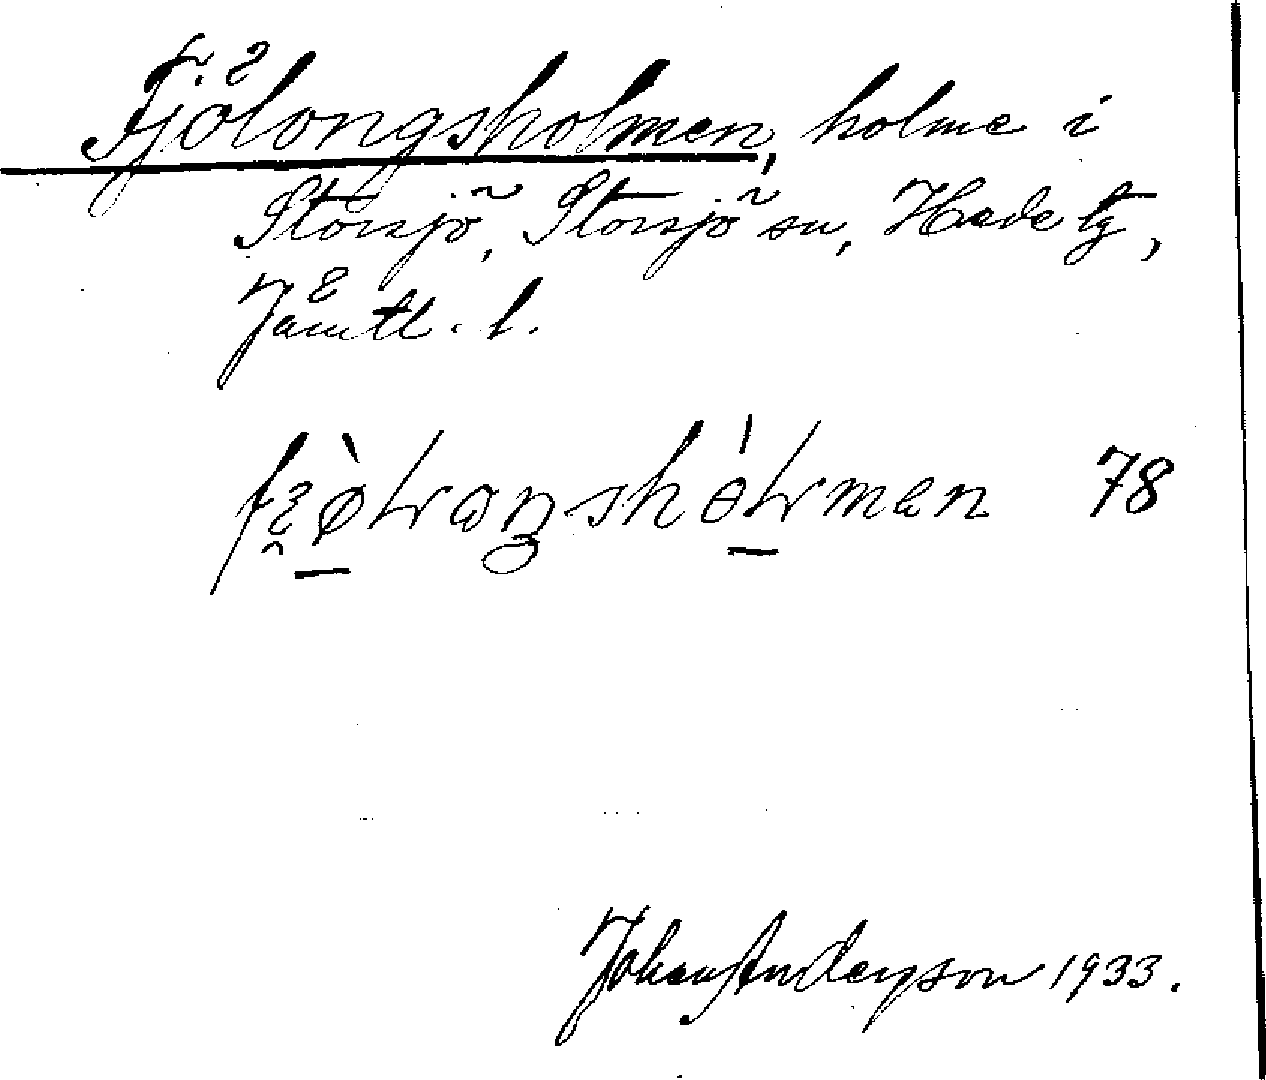 Fjölongsholmen, holme i
Storsjö, Storsjö sn, Hede tg,
Jämtl. l.
78
Johan Anderson 1933.